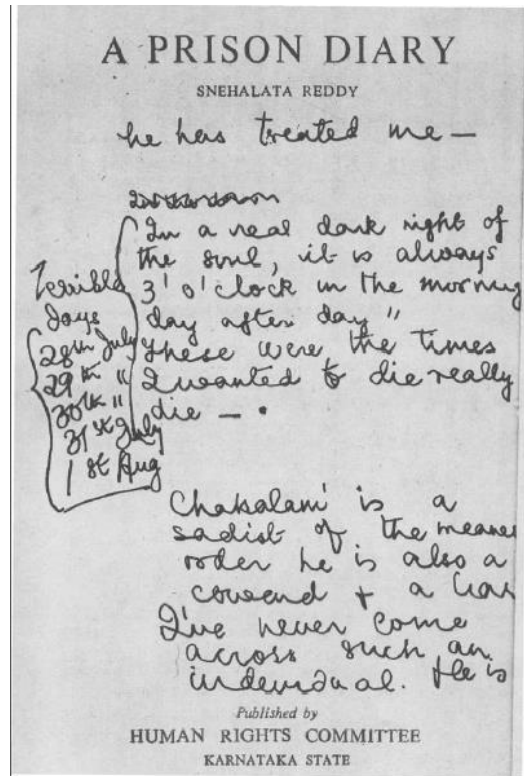 A PRISON DIARY
SNEHALATA REDDY
he has treated me —
In a real dark night of
the soul, it is always
3' o' clock in the morning
day after day "
These were the times
I wanted to die really
die — .
Terrible
days
28th July
29th "
30th "
31st July
1st Aug
Chakalani is a
sadist of the meaner
order he is also a
coward + a liar
I've never come
across such an
individual. He is
Published by
HUMAN RIGHTS COMMITTEE
KARNATAKA STATE